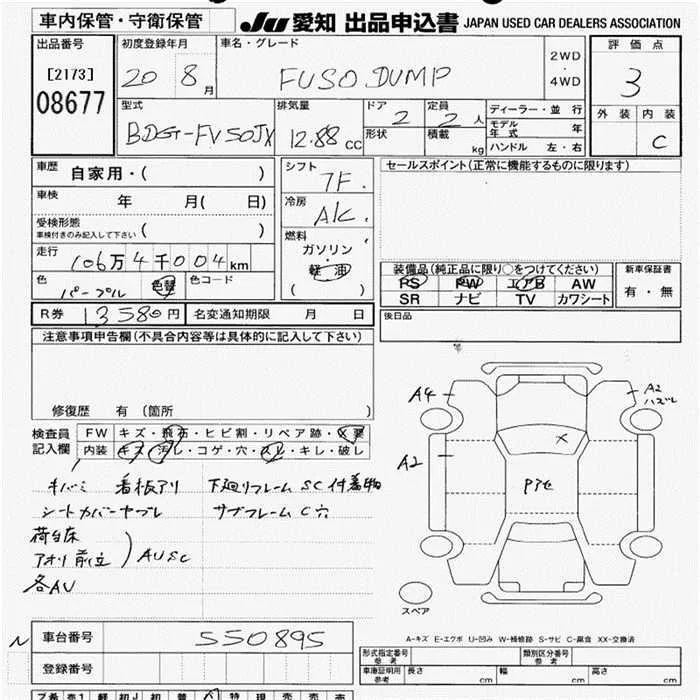 車内保管・守衛保管
JU 愛知 出品申込書 JAPAN USED CAR DEALERS ASSOCIATION
出品番号
[2173]
08677
初度登録年月
20 8月
車名・グレード
FUSO DUMP
2WD
・
4WD
評価点
3
外装 内装
C
型式
BDG-FV50JX
排気量
12.88 CC
ドア
2
形状
定員
2人
積載
kg
ディーラー・並行
モデル年式 年
ハンドル 左・右
車歴
自家用・( )
車検
年 月( 日)
受検形態
車検付きのみ記入して下さい ( )
走行
106万4千004km
色
パープル 色替
色コード
シフト
7F.
冷房
A/C.
燃料
ガソリン
・
軽油
( )
セールスポイント(正常に機能するものに限ります)
装備品(純正品に限り○をつけてください)
PS PW エアB AW
SR ナビ TV カワシート
新車保証書
有・無
後日品
R券 13580円
名変通知期限 月 日
注意事項申告欄(不具合内容等は具体的に記入して下さい)
修復歴 有(箇所 )
検査員
記入欄
FW キズ・飛石・ヒビ割・リペア跡・X要
内装 キズ・汚レ・コゲ・穴・スレ・キレ・破レ
キバミ 看板アリ 下廻リフレームSC付着物
シートカバーヤブレ サブフレームC穴
荷台床
アオリ 前立 ) AUSC
各AU
A4
A2
ハズレ
A2
X
Pアセ
スペア
A-キズ E-エクボ U-凹み W-補修跡 S-サビ C-腐食 XX-交換済
車台番号
550895
登録番号
形式指定番号
参考
類別区分番号
参考
車庫証明用
参考
長さ cm
幅 cm
高さ cm